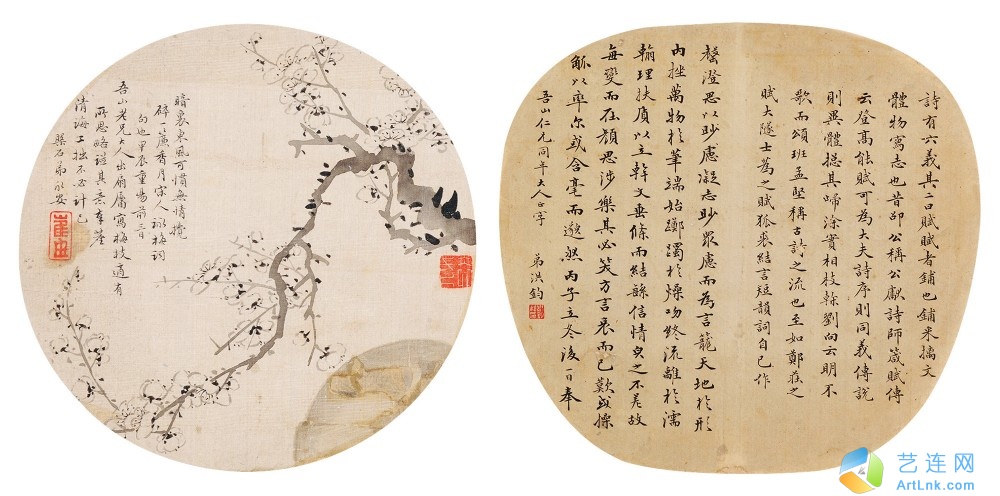 暗裏東風可慣無情攪
碎一簾香月宋人詠梅詞
句也甲辰重陽前三日
吾山老兄大人出扇屬寫梅枝適有
所思略謹其意奉鑒
清海工拙不必計已
石弟
詩有六義其二曰賦賦者鋪也鋪采摛文
體物寫志也昔邵公稱公獻詩師箴賦傳
云登高能賦可為大夫詩序則同義傳說
則異體摠其歸塗實相枝榦劉向云明不
歌而頌班孟堅稱古詩之流也至如鄭莊之
賦大隧士蒍之賦狐裘結言短韻詞自己作
罄澄思以眇慮凝志眇眾慮而為言籠天地於形
內挫萬物於筆端始躑躅於燥吻終流離於濡
翰理扶質以立幹文垂條而結繇信情皃之不差故
每變而在顏思涉樂其必笑方言哀而已歎或操
觚以率尔或含毫而邈然丙子立冬後一日奉
吾山仁兄同年大人正字 弟洪鈞
艺连网
ArtLnk.com